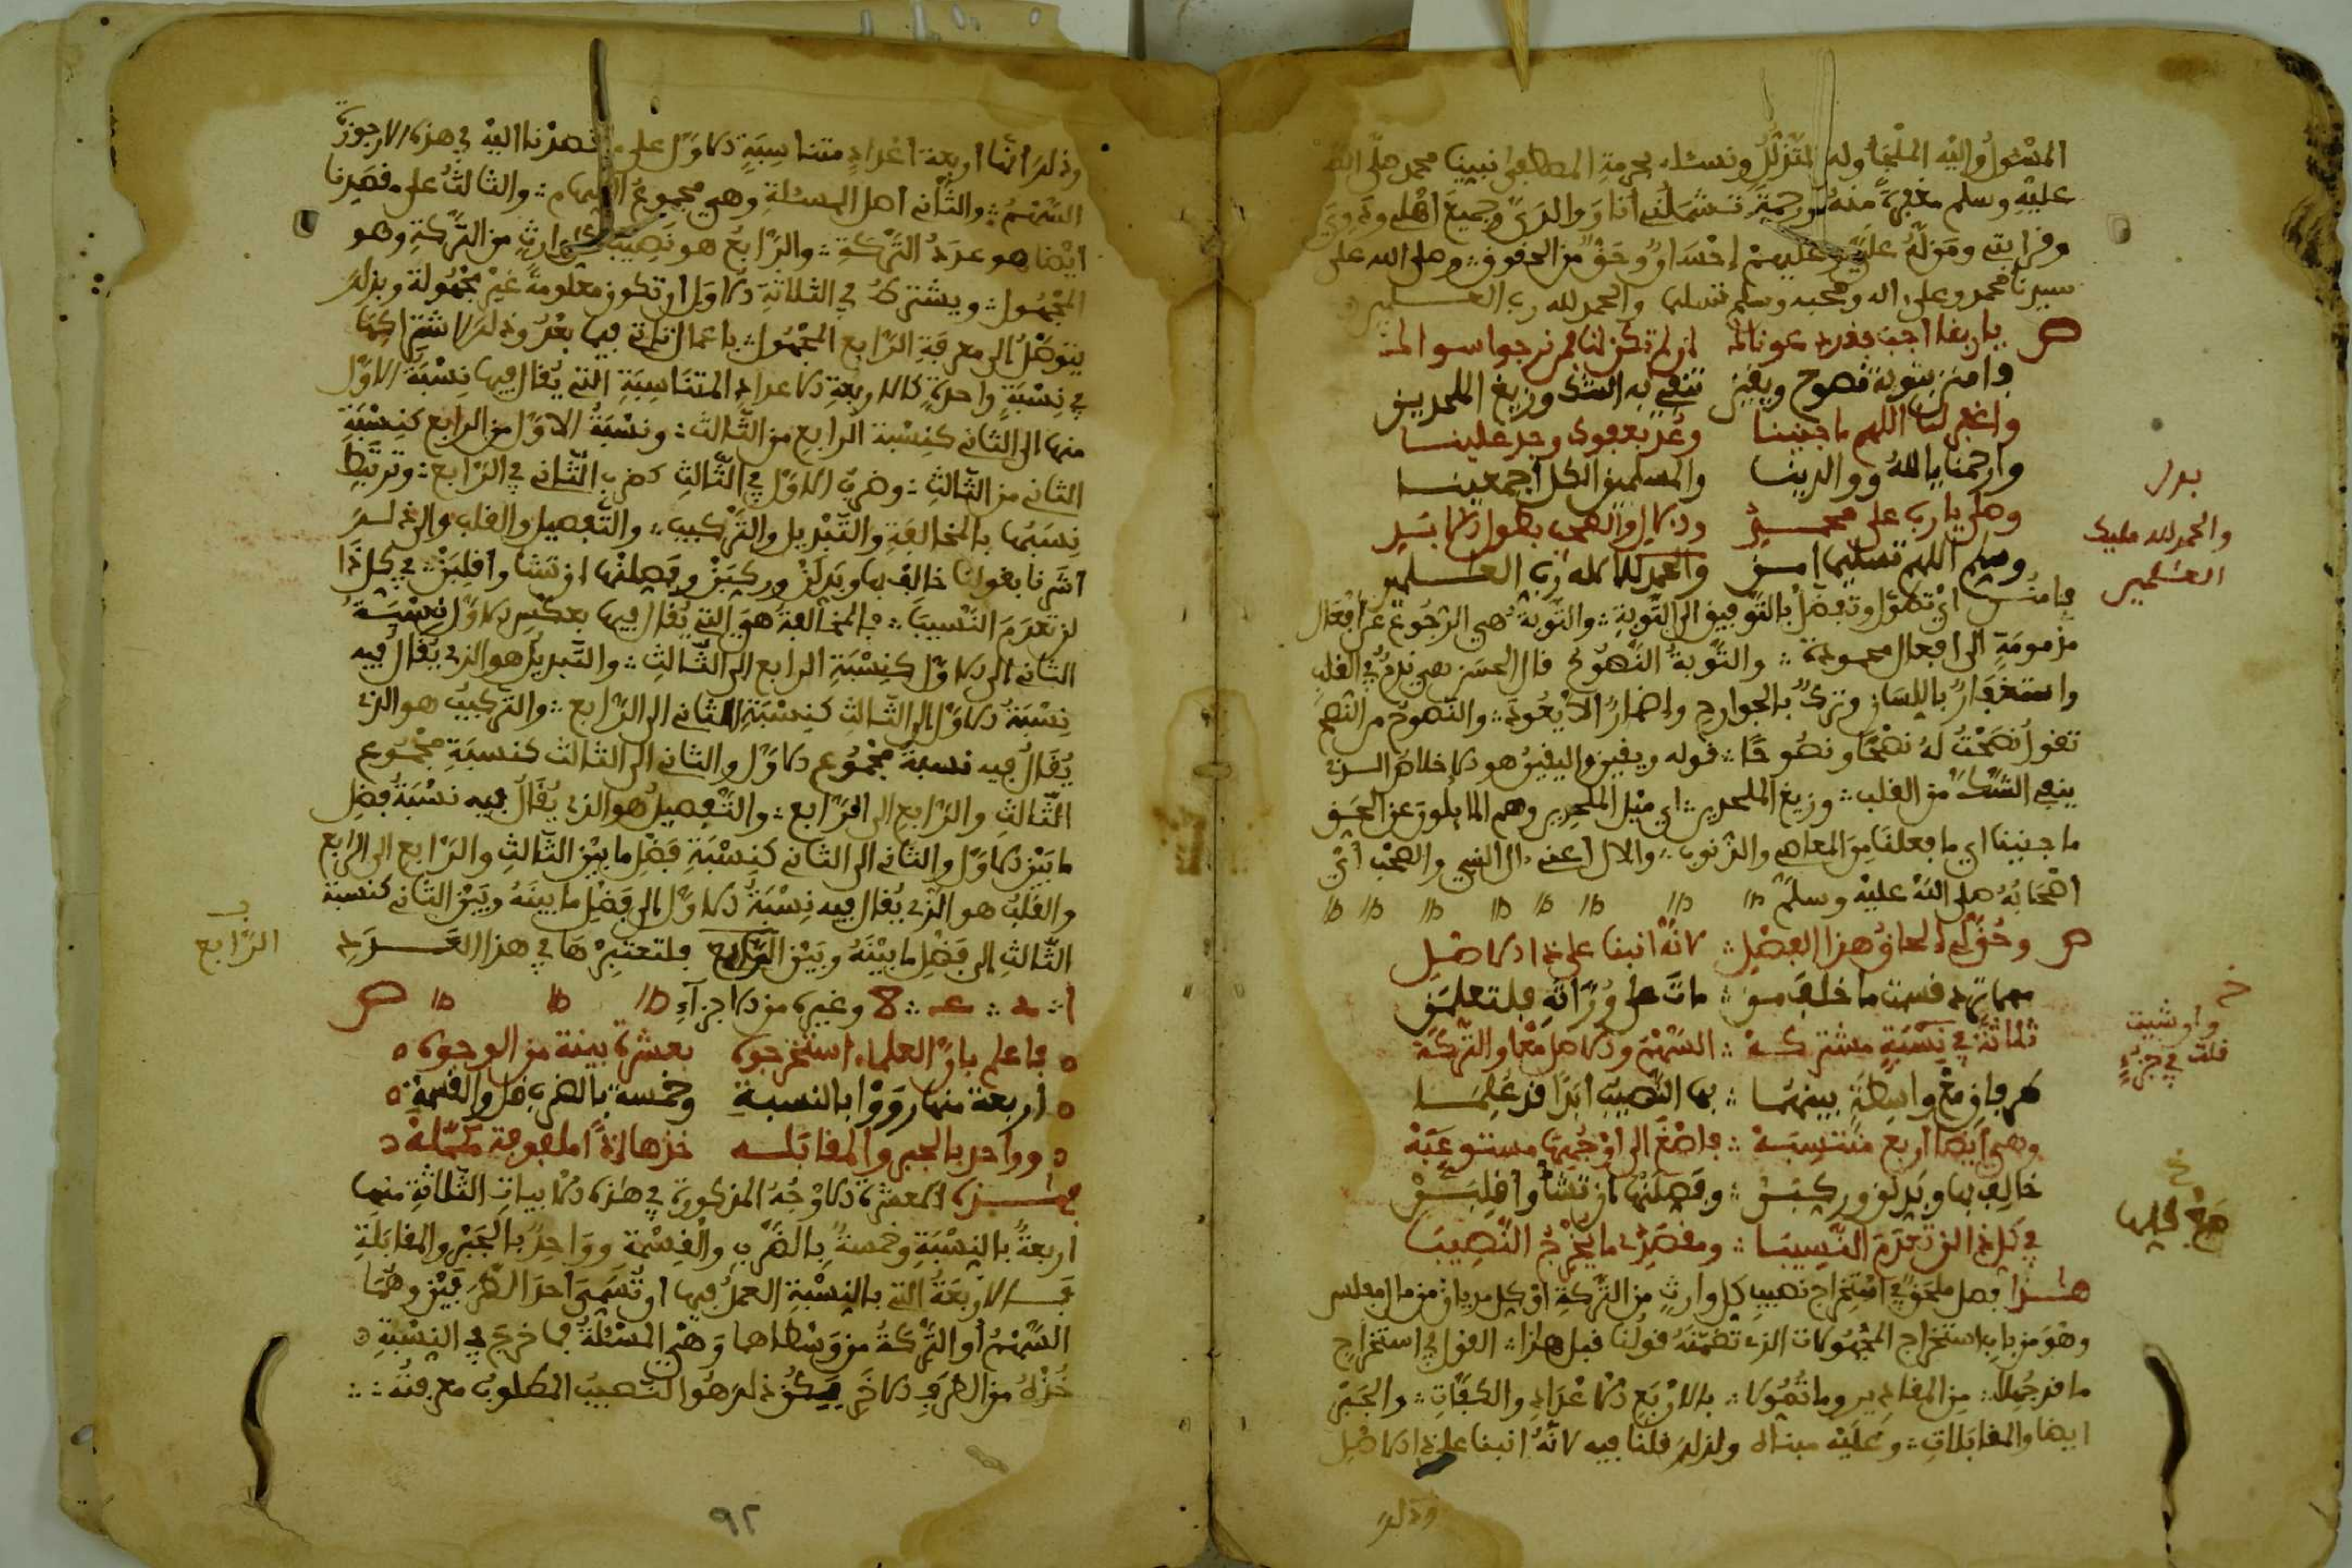 المسئول واليه الملجأ وله المتذلل ونسئله بحرمة المصطفى نبينا محمد صلى الله
عليه وسلم مغفرة منه ورحمة تشملني أنا ووالدي وجميع أهلي وذوي
وقرابتي ومن له علي وعليهم إحسان أو حق من الحقوق وصلى الله على
سيدنا محمد وعلى اله وصحبه وسلم تسليما والحمد لله رب العلمين
ص يا ربنا اجب بفضلك عونا لمن لم تكن لنا فمن نرجوا سواك
وامنن بتوبة نصوح ويقين ننفي به الشك وزيغ الملحدين
واغفر لنا اللهم ما جنينا وعد بعفوك وجد علينا
وارحمنا يا الله ووالدينا والمسلمين الكل أجمعينا
وصل يا رب على محمد والال والصحب بطول الابد
وسلم اللهم تسليما امين والحمد لله الاله رب العلمين
بدل
والحمد لله مليك
العلمين
فامنن أي تطول وتفضل بالتوفيق الى التوبة والتوبة هي الرجوع عن أفعال
مذمومة الى أفعال محمودة والتوبة النصوح قال الحسن هي ندم في القلب
واستغفار باللسان وترك بالجوارح وإضمار الا يعود والنصوح من النصح
تقول نصحت له نصحا ونصوحا قوله ويقين واليقين هو الاخلاص الذي
ينفي الشك من القلب وزيغ الملحدين أي ميل الملحدين وهم المايلون عن الحق
ما جنينا أي ما فعلنا من المعاصي والذنوب والال أعني ال النبي والصحب أي
أصحابه صلى الله عليه وسلم
ص وحق لي الحاق هذا الفصل لانه انبنا على ذا الاصل
مهما ترد قسمت ما خلف من مات على وراثه فلتعلمن
ثلاثة في نسبة مشتركة السهم والاصل معا والتركة
خ
وان شيت
قلت في جزء
طرفان مع واسطة بينهما بها النصيب ابدا قد علما
وهي أيضا اربع منتسبة فاصغ الى أوجهها مستوعبة
خالف بها وبدلن وركبن وفصلنها ان تشأ واقلبن
خ
صح
في كل ذا لن تعدم النسيبا ومقصدي ما يخرج النصيبا
هذا فصل ملحق في استخراج نصيب كل وارث من التركة أو كل مديان من مال مفلس
وهو من باب استخراج المجهولات الذي تضمنه قولنا قبل هذا القول في استخراج
ما قد جهلا من المقادير وما تحولا بالاربع الاعداد والكفات والجبر
ايضا والمقابلات وعليه مبناه ولذلك قلنا فيه لانه انبنا على ذا الاصل
وذلك
وذلك انها أربعة أعداد متناسبة الاول على ما قصدنا اليه في هذه الارجوزة
السهم والثاني أصل المسئلة وهي مجموع السهام والثالث على ما قصدنا
ايضا هو عدد التركة والرابع هو نصيب كل وارث من التركة وهو
المجهول ويشترط في الثلاثة الاول ان تكون معلومة غير مجهولة وبذلك
يتوصل الى معرفة الرابع المجهول باعمال تاتي فيما بعد وذلك لاشتراكها
في نسبة واحدة كالاربعة الاعداد المتناسبة التي يقال فيها نسبة الاول
منها الى الثاني كنسبة الرابع من الثالث ونسبة الاول من الرابع كنسبة
الثاني من الثالث وضرب الاول في الثالث كضرب الثاني في الرابع وترتبط
نسبتها بالمخالفة والتبديل والتركيب والتفصيل والقلب والى ذلك
أشرنا بقولنا خالف بها وبدلن وركبن وفصلنها ان تشا واقلبن في كل ذا
لن تعدم النسيبا فالمخالفة هو التي يقال فيها بعكس الاول نسبة
الثاني الى الاول كنسبة الرابع الى الثالث والتبديل هو الذي يقال فيه
نسبة الاول الى الثالث كنسبة الثاني الى الرابع والتركيب هو الذي
يقال فيه نسبة مجموع الاول والثاني الى الثالث كنسبة مجموع
الثالث والرابع الى الرابع والتفصيل هو الذي يقال فيه نسبة فضل
ما بين الاول والثاني الى الثاني كنسبة فضل ما بين الثالث والرابع الى الرابع
والقلب هو الذي يقال فيه نسبة الاول الى فضل ما بينه وبين الثاني كنسبة
الثالث الى فضل ما بينه وبين الرابع فلتعتبرها في هذا العدد
الرابع
وغيره من الاجزاء ص
فاعلم بان العلماء استخرجوه بعشرة بينة من الوجوه
أربعة منها رووا بالنسبة وخمسة بالضرب قل والقسمة
وواحد بالجبر والمقابلة خذها اذا ملفوفة مكملة
هذه العشرة الاوجه المذكورة في هذه الابيات الثلاثة منها
أربعة بالنسبة وخمسة بالضرب والقسمة وواحد بالجبر والمقابلة
فالاربعة التي بالنسبة العمل فيها ان تسمى احد الطرفين وهما
السهم أو التركة من وسطاهما وهي المسئلة فما خرج في النسبة
خذه من الطرف الاخر يكن ذلك هو النصيب المطلوب معرفته
٩٢